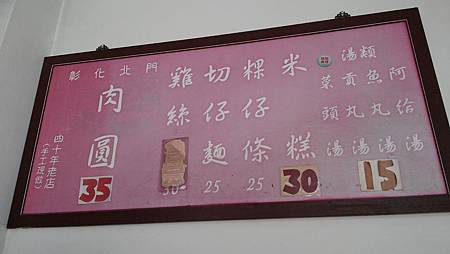 彰化北門
肉圓
35
四十年老店
(手工現做)
雞絲
30
切仔麵
25
粿仔條
25
米糕
30
湯類
菜頭湯
貢丸湯
魚丸湯
阿給湯
15